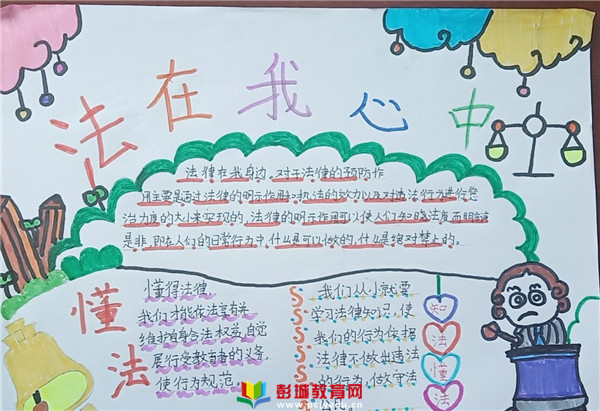 法在我心中
法律在我身边,对于法律的预防作
用主要是通过法律的明示作用和执法的效力以及对违法行为进行惩
治力度的大小来实现的,法律的明示作用可以使人们知晓法律而明辨
是非,即在人们的日常行为中,什么是可以做的,什么是绝对禁止的。
懂法
懂得法律
我们才能依法享有并
维护自身合法权益,自觉
履行受教育者的义务,
使行为规范,
我们从小就要
学习法律知识,使
我们的行为依据
法律不做出违法
的行为,做守法
知
法
懂
法
彭城教育网
www.pcjyedu.cn